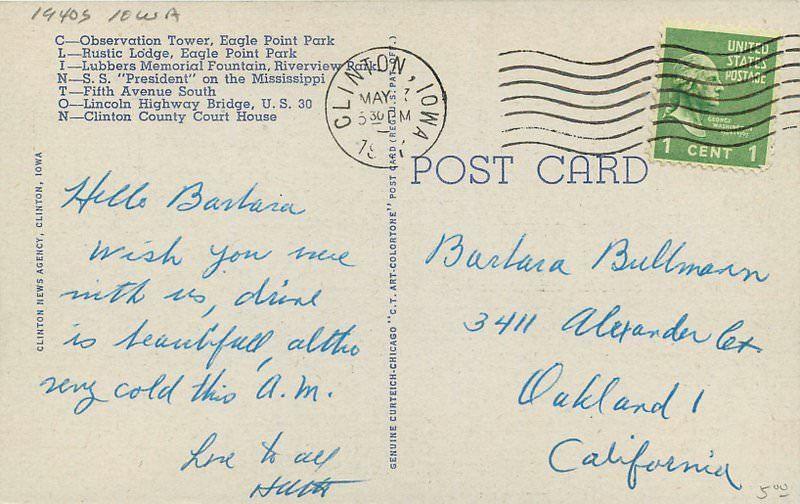 1940s IOWA
C—Observation Tower, Eagle Point Park
L—Rustic Lodge, Eagle Point Park
I—Lubbers Memorial Fountain, Riverview Park
N—S.S. "President" on the Mississippi
T—Fifth Avenue South
O—Lincoln Highway Bridge, U.S. 30
N—Clinton County Court House
CLINTON, IOWA
MAY
30 PM
UNITED
STATES
POSTAGE
GEORGE
WASHINGTON
1 CENT 1
POST CARD
CLINTON NEWS AGENCY, CLINTON, IOWA
Hello Barbara
Wish you were
with us, drive
is beautifull, altho
very cold this A.M.
Love to all
GENUINE CURTEICH-CHICAGO "C.T. ART-COLORTONE" POST CARD (REG. U.S. PAT. OFF.)
Barbara Bullmann
3411 Alexander Ct
Oakland 1
California
5.00